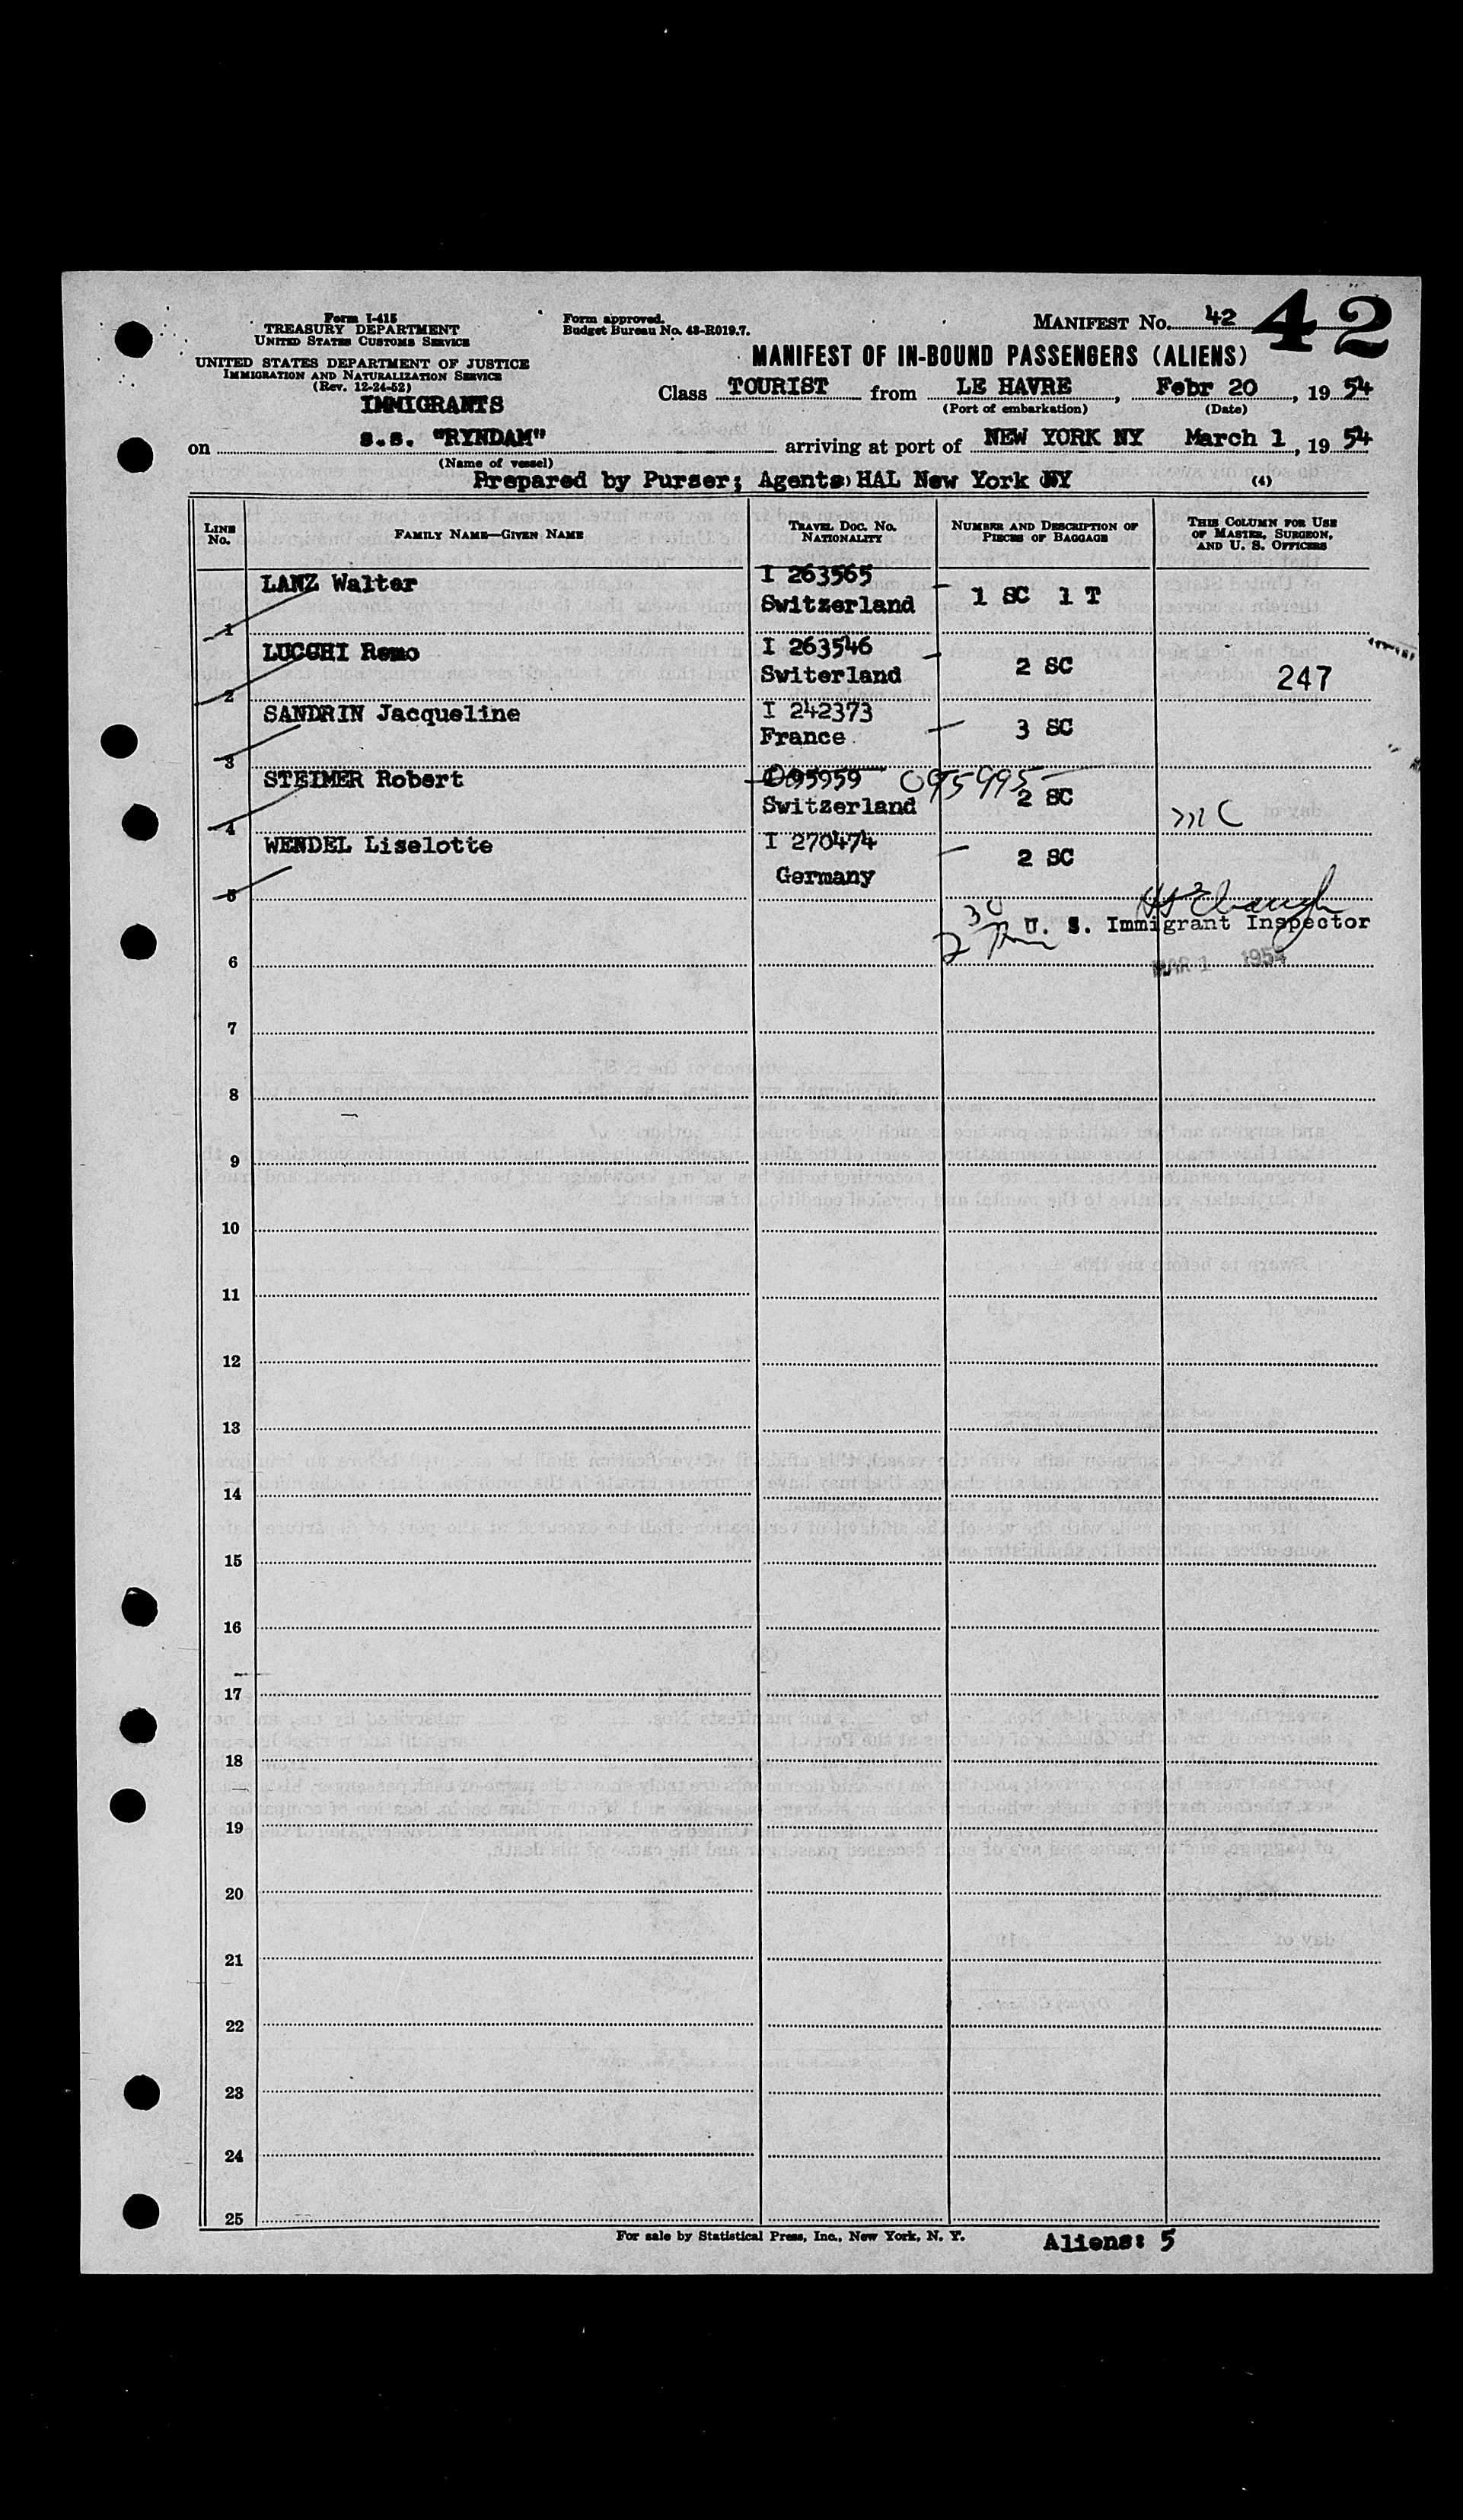 Form I-415
TREASURY DEPARTMENT
UNITED STATES CUSTOMS SERVICE
UNITED STATES DEPARTMENT OF JUSTICE
IMMIGRATION AND NATURALIZATION SERVICE
(Rev. 12-24-52)
IMMIGRANTS
Form approved.
Budget Bureau No. 43-R019.7.
MANIFEST No. 42
42
MANIFEST OF IN-BOUND PASSENGERS (ALIENS)
Class TOURIST from LE HAVRE, Febr 20, 19 54
(Port of embarkation) (Date)
on s.s. "RYNDAM" arriving at port of NEW YORK NY March 1, 19 54
(Name of vessel)
Prepared by Purser; Agents HAL New York NY (4)
LINE No. FAMILY NAME—GIVEN NAME TRAVEL DOC. NO. NATIONALITY NUMBER AND DESCRIPTION OF PIECES OF BAGGAGE THIS COLUMN FOR USE OF MASTER, SURGEON, AND U. S. OFFICERS
1 LANZ Walter I 263565 Switzerland 1 SC 1 T
2 LUCCHI Remo I 263546 Switerland 2 SC 247
3 SANDRIN Jacqueline I 242373 France 3 SC
4 STEIMER Robert 095959 095995 Switzerland 2 SC
5 WENDEL Liselotte I 270474 Germany 2 SC
U. S. Immigrant Inspector
MAR 1 1954
6
7
8
9
10
11
12
13
14
15
16
17
18
19
20
21
22
23
24
25
For sale by Statistical Press, Inc., New York, N. Y.
Aliens: 5